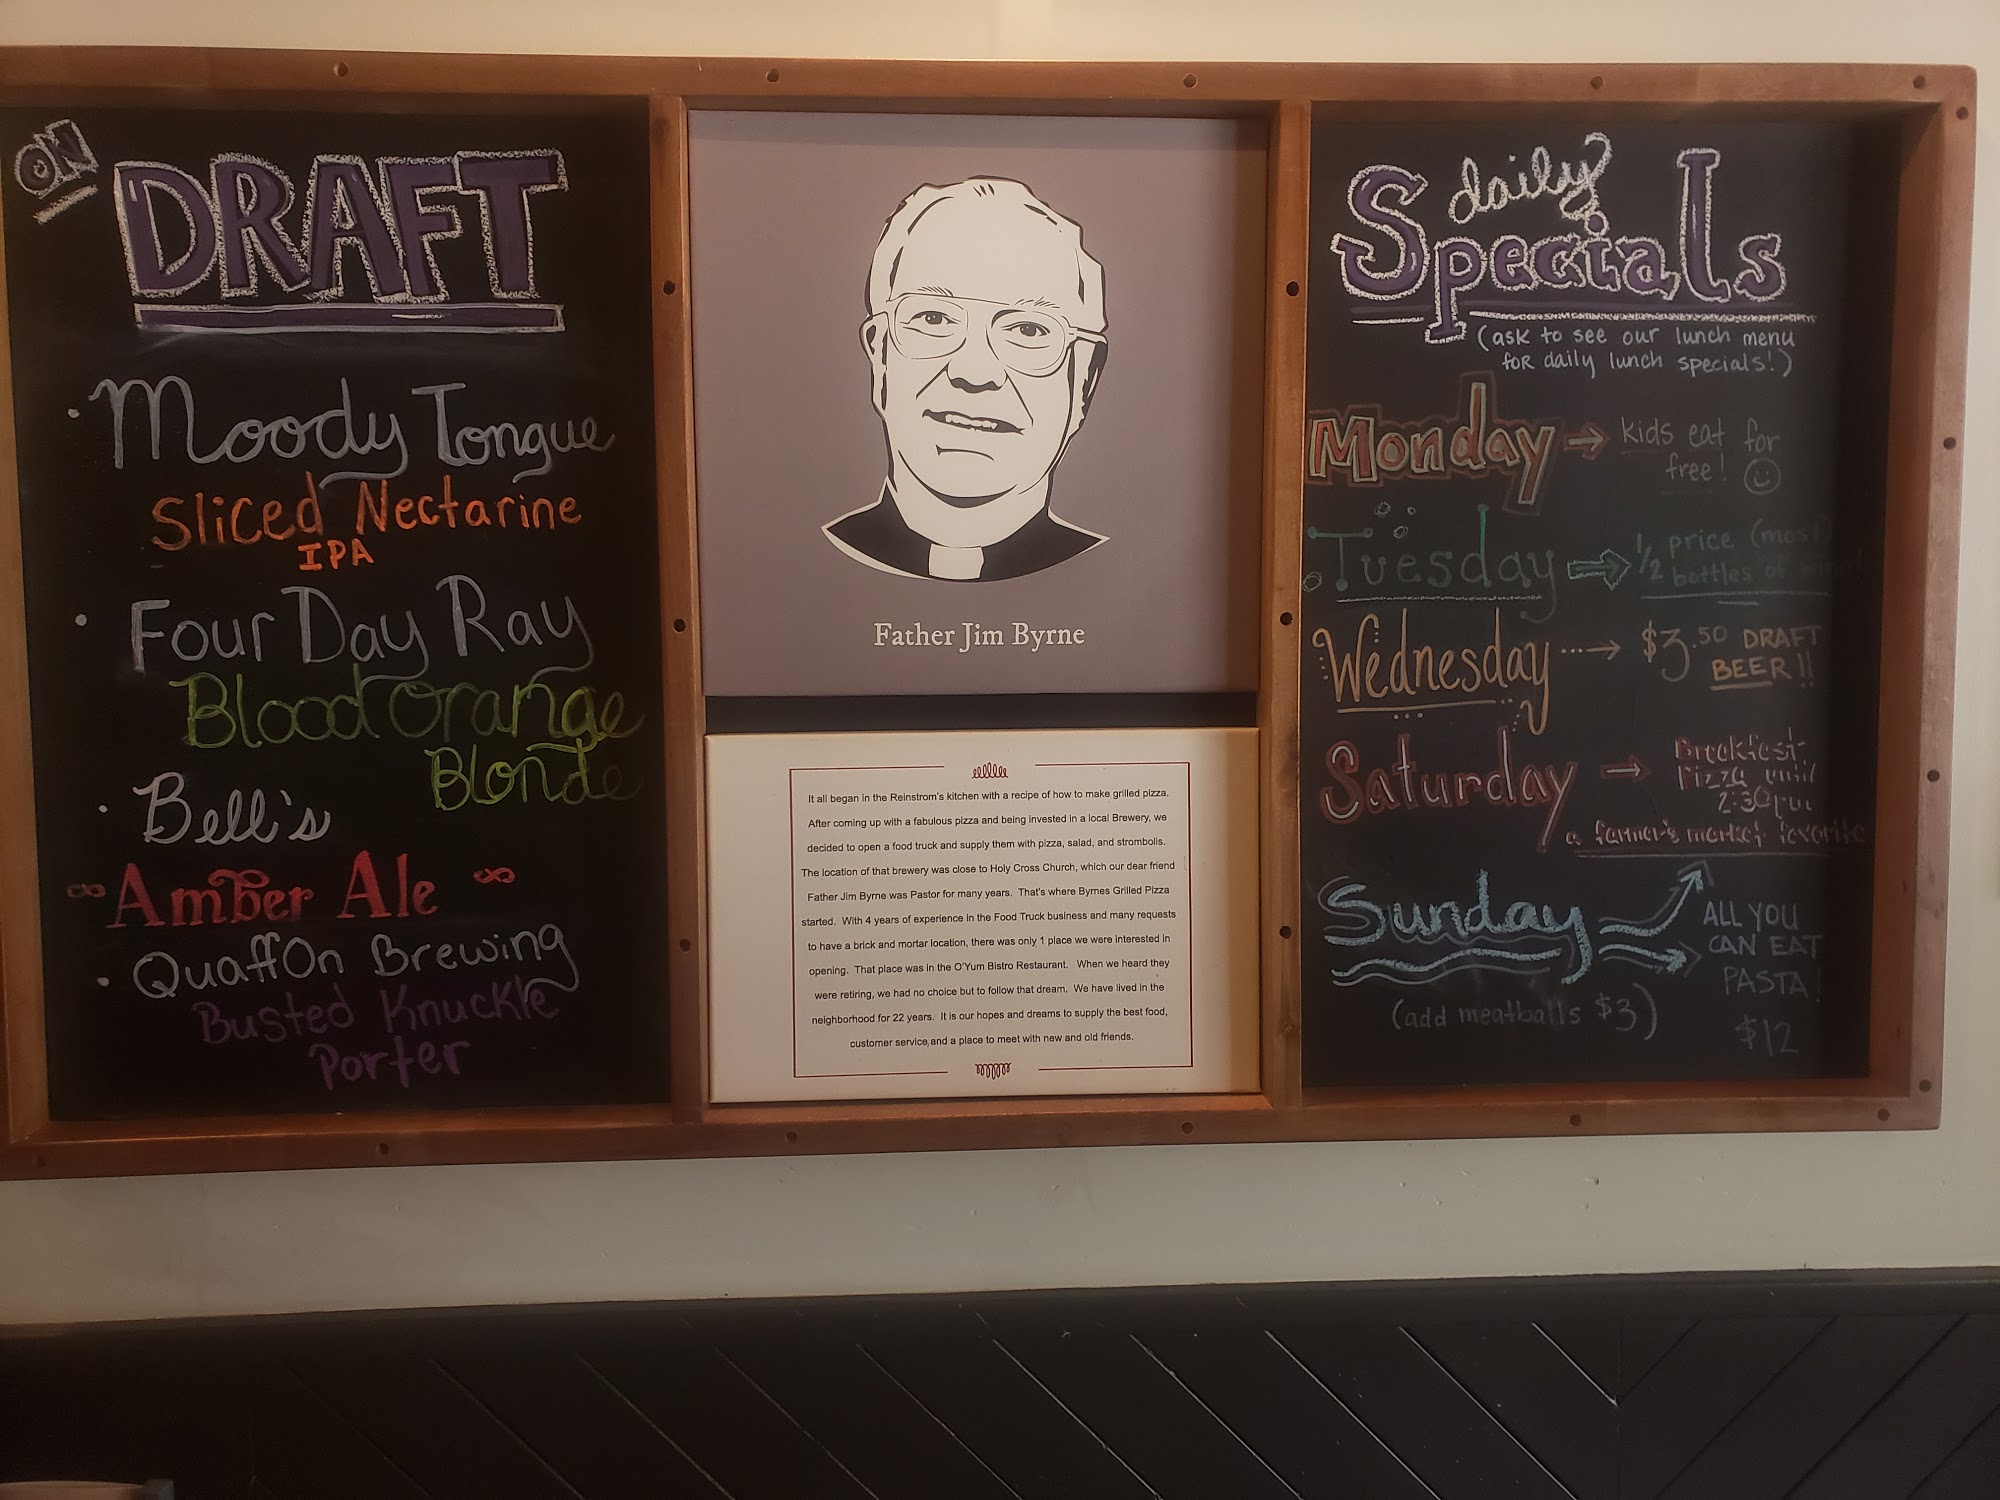 ON
DRAFT
• Moody Tongue
Sliced Nectarine
IPA
• Four Day Ray
Blood Orange
Blonde
• Bell's
Amber Ale
• QuaffOn Brewing
Busted Knuckle
Porter
Father Jim Byrne
It all began in the Reinstrom's kitchen with a recipe of how to make grilled pizza.
After coming up with a fabulous pizza and being invested in a local Brewery, we
decided to open a food truck and supply them with pizza, salad, and strombolis.
The location of that brewery was close to Holy Cross Church, which our dear friend
Father Jim Byrne was Pastor for many years. That's where Byrnes Grilled Pizza
started. With 4 years of experience in the Food Truck business and many requests
to have a brick and mortar location, there was only 1 place we were interested in
opening. That place was in the O'Yum Bistro Restaurant. When we heard they
were retiring, we had no choice but to follow that dream. We have lived in the
neighborhood for 22 years. It is our hopes and dreams to supply the best food,
customer service, and a place to meet with new and old friends.
daily
Specials
(ask to see our lunch menu
for daily lunch specials!)
Monday → kids eat for
free!
Tuesday ⇒ 1/2 price (most)
bottles of
Wednesday → $3.50 DRAFT
BEER!!
Saturday → Breakfast
Pizza until
2:30pm
a farmer's market favorite
Sunday
ALL YOU
CAN EAT
PASTA!
(add meatballs $3)
$12